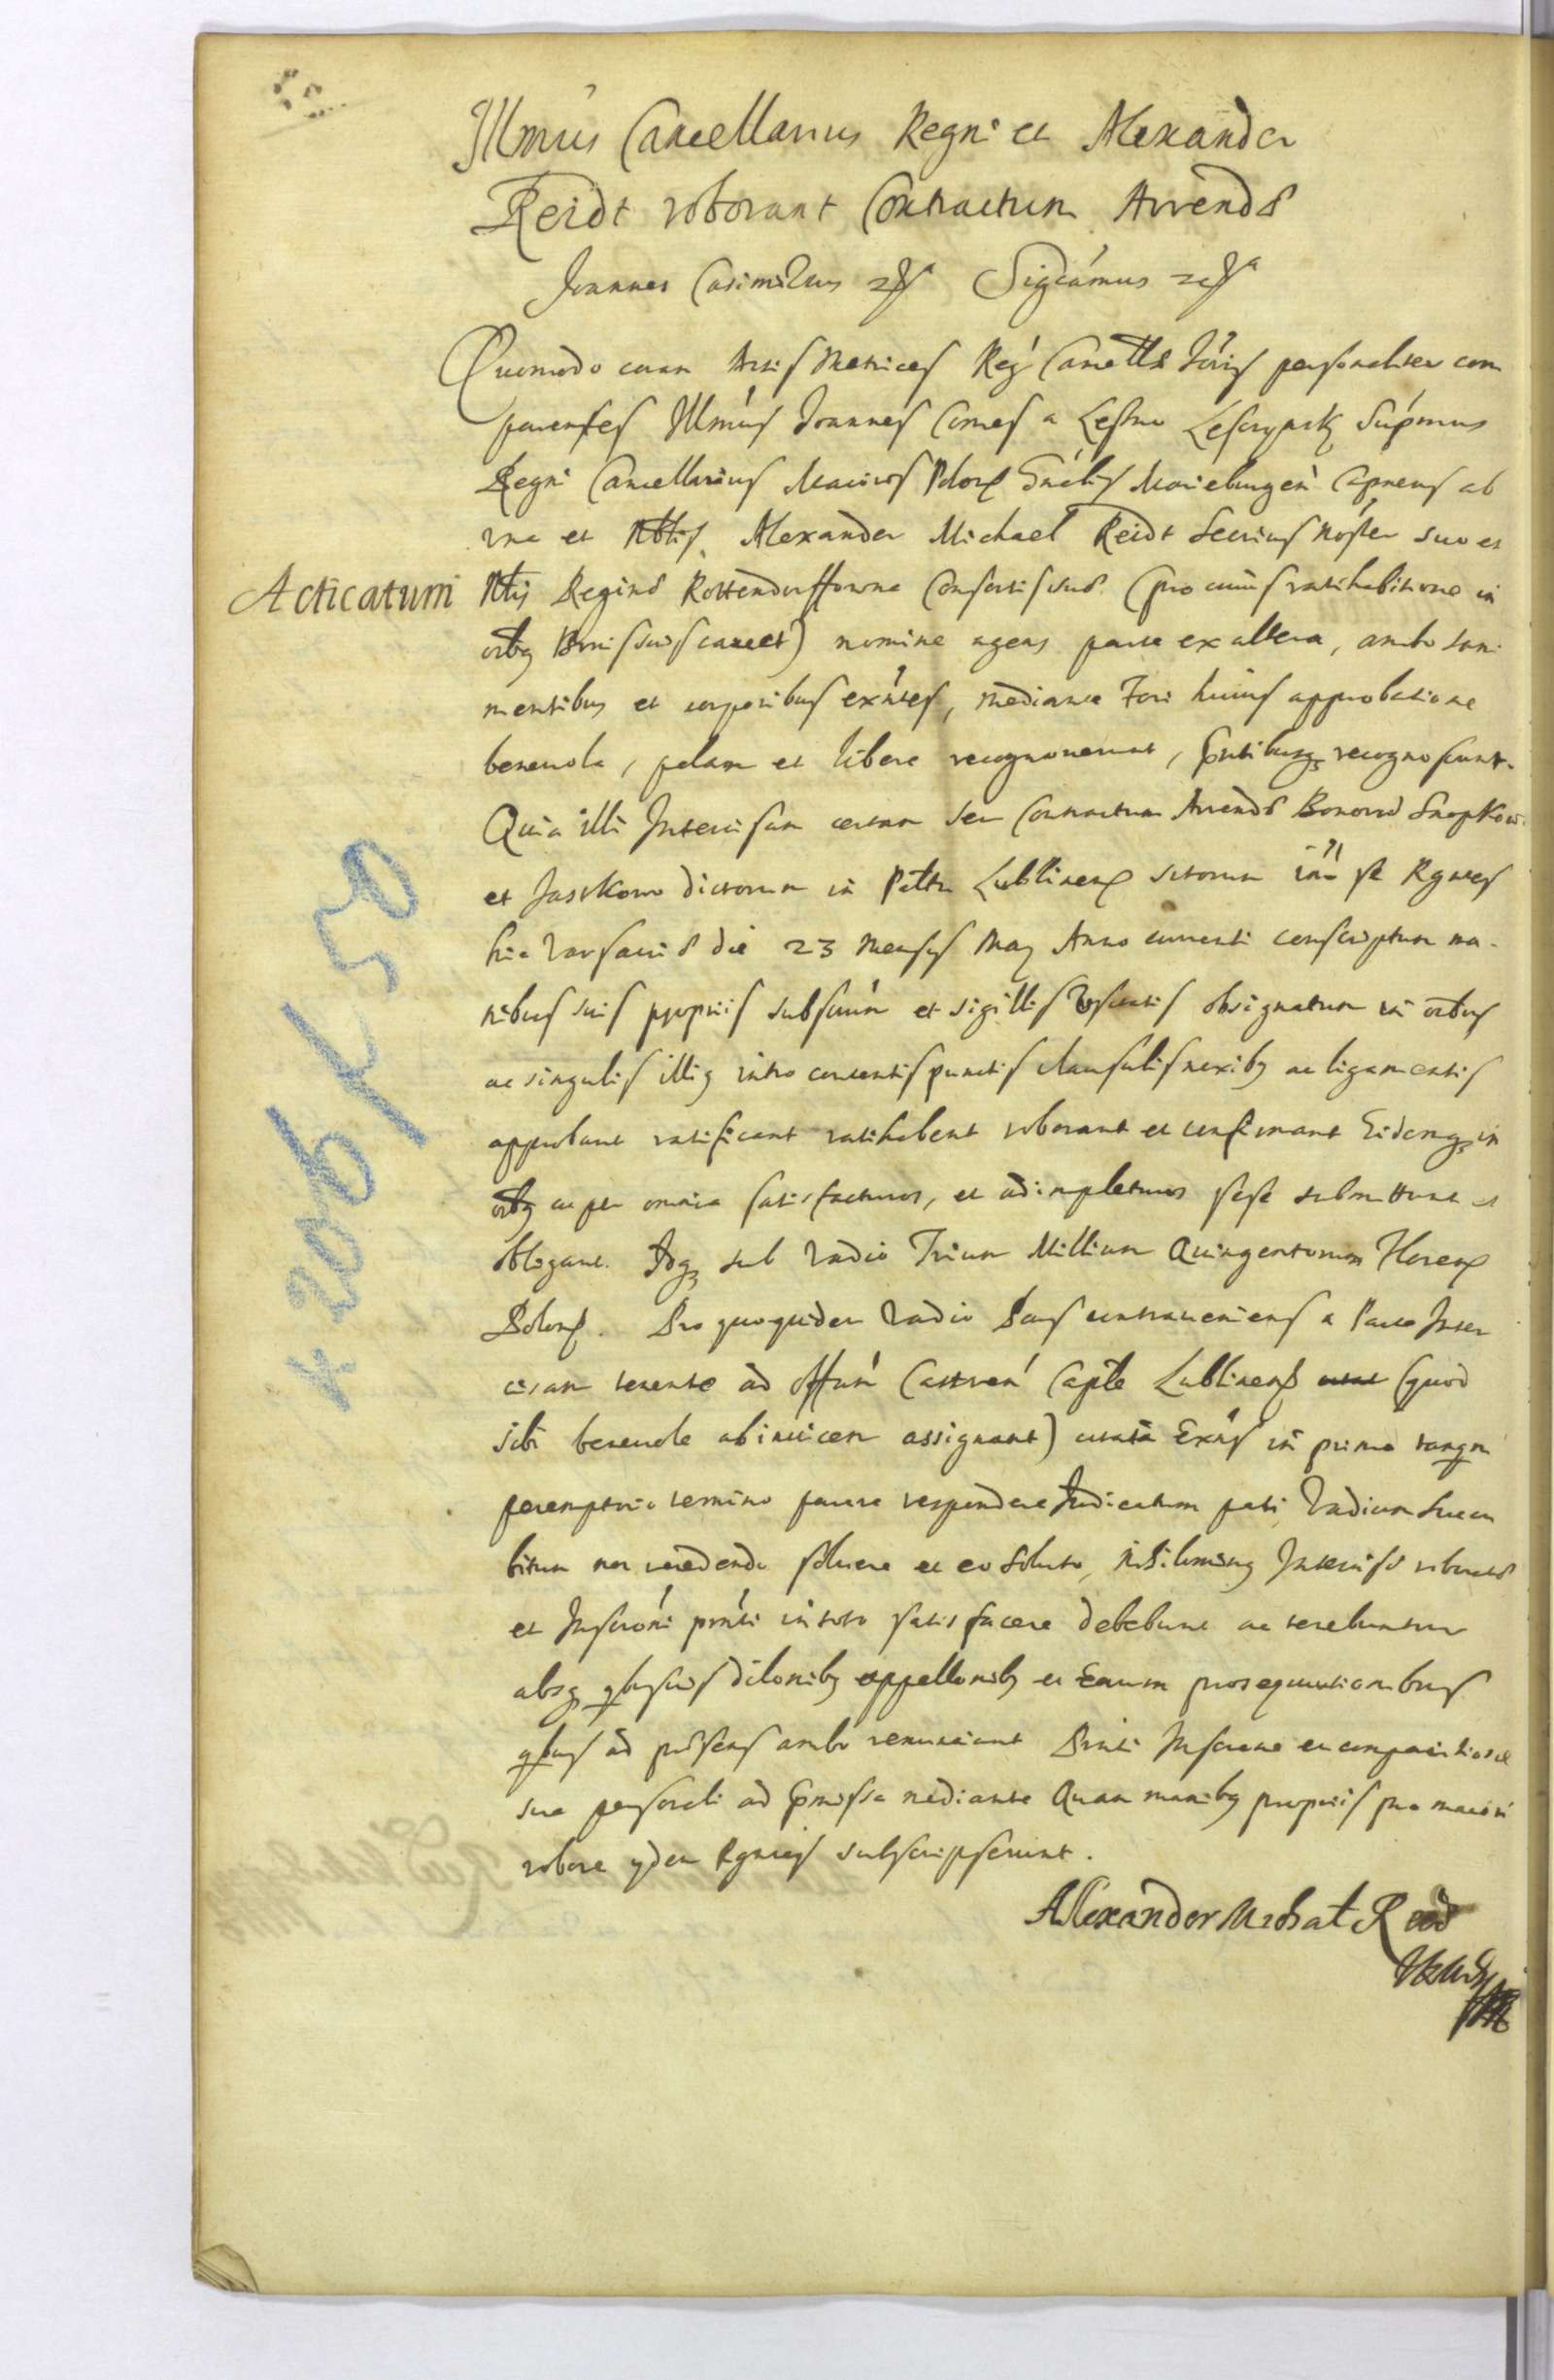 Illmus Cancellarius Regni et Alexander
Reidt roborant Contractum Arrendae
Joannes Casimirus Significamus
Quomodo coram Actis Metrices Regn Cancellae Joannis personaliter com
parentes Illmus Joannes Comes a Leszno Lesczynsky Supmus
Regni Cancellarius Maioris Polon Gnalis Marieburgen Capneus ab
vna et Nblis Alexander Michael Reidt Secrius noster suo et
Acticatum
Nblis Reginae Rottendorffowna Consortis suae (pro cuius ratihabitione in
oibq Bonis suis cauet) nomine agens parte ex altera, ambo sani
mentibus et corporibus exntes, mediante Fori huius approbatione
beneuole, palam et libere recognouerunt, pntibusq recognoscunt.
Quia illi Intercisam certam seu Contractum Arrendae Bonorum Snopkow
et Jastkow dictorum in Pltu Lublinen sitorum inter se Rgntes
hic Varsauiae die 23 Mensis Maij Anno currenti conscriptum ma-
nibus suis proprijs subscriptum et sigillis obsignatum in oibus
ac singulis illiq intro contentis punctis clausulis nexibq ac ligamentis
approbant ratificant ratihabent roborant et confirmant Eidemq in
oibq ac per omnia satisfacturos, et adimpleturos sese submittunt et
obligant. Idq sub Vadio Trium Millium Quingentorum Floren
Polon. Pro quoquidem Vadio Pars contraueniens a Parte Inter
cisam tenente ad Offum Castren Caple Lublinen (quod
sibi beneuole abinuicem assignant) citata Exns in primo tanqm
peremptorio termino parere respondere Judicatum pati Vadium succu
bitum non recedendo soluere et eo soluto, nihilominq Intercisae roboratae
et Inscroni pnti in toto satisfacere debebunt ac tenebuntur
absq qbusuis dilonibq appellonibq et Earum prosequutionibus
qbus ad prdsens ambo renunciant Pnti Inscrone et comparitione
sua personali ad pmissa mediante Quam manibq proprijs pro maiori
robore ijdem Rgntes subscripserunt.
Alexander Michal Reid